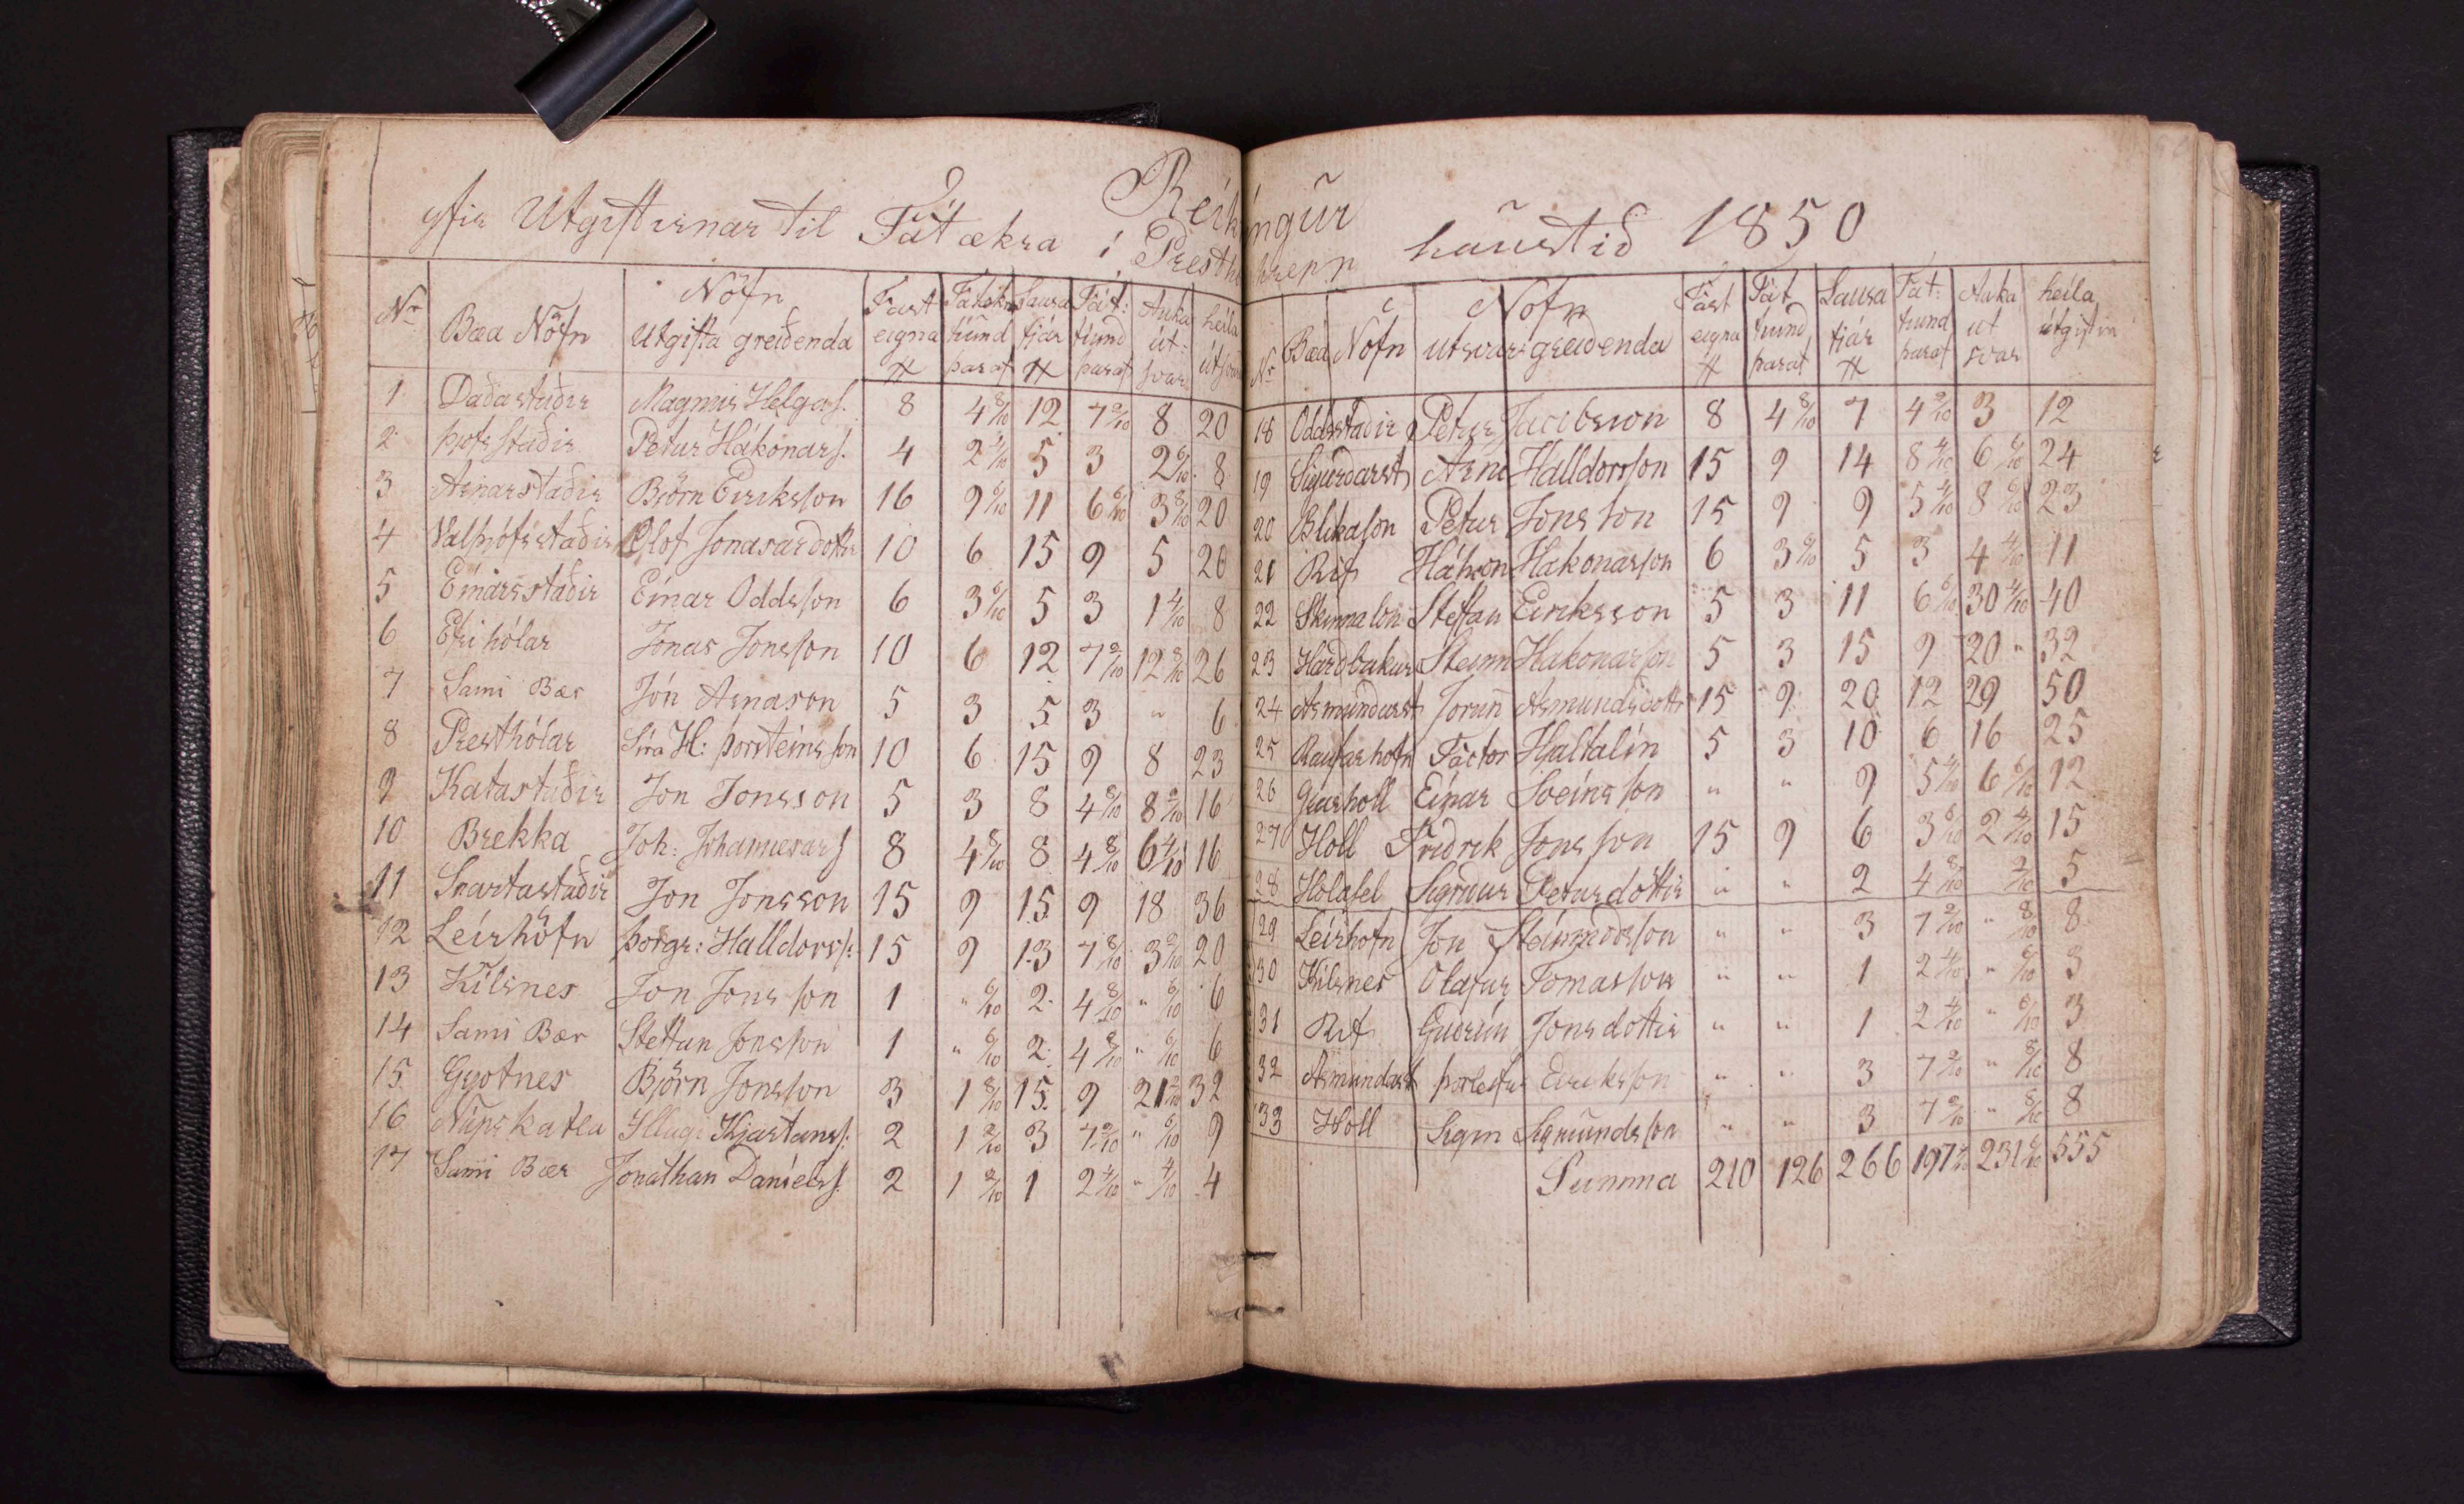 Reikningur
yfir Utgiftirnar til Fátækra i Presthó hrepp haustið 1850
Nr Bæa Nöfn Nöfn Utgifta greiðenda Fast eigna # Fátækra tíund þaraf Lausa fjár # Fát: tíund þaraf Auka út- svar heila útsvar
1 Daðastaðir Magnús Helgas. 8 4 8/10 12 7 2/10 8 20
2 Þofsstaðir Petur Hákonars. 4 2 4/10 5 3 2 6/10 8
3 Arnarstaðir Björn Eiriksson 16 9 6/10 11 6 6/10 3 8/10 20
4 Valþjófsstaðir Olof Jonasardottir 10 6 15 9 5 20
5 Einarsstaðir Einar Oddsson 6 3 6/10 5 3 1 4/10 8
6 Efri hólar Jonas Jonsson 10 6 12 7 2/10 12 8/10 26
7 Sami Bær Jón Arnason 5 3 5 3 " 6
8 Presthólar Síra H: Þorsteinsson 10 6 15 9 8 23
9 Katastaðir Jon Jonsson 5 3 8 4 8/10 8 2/10 16
10 Brekka Joh: Johannesars 8 4 8/10 8 4 8/10 6 4/10 16
11 Snartastaðir Jon Jonsson 15 9 15 9 18 36
12 Leirhöfn Þorgr: Halldorss: 15 9 13 7 8/10 3 2/10 20
13 Kílsnes Jon Jonsson 1 " 6/10 2 4 8/10 " 6/10 6
14 Sami Bær Stefan Jonsson 1 " 6/10 2 4 8/10 " 6/10 6
15 Gyotnes Björn Jonsson 3 1 8/10 15 9 21 2/10 32
16 Núpskatla Illugi Kjartanss: 2 1 2/10 3 7 2/10 " 6/10 9
17 Sami Bær Jonathan Daníelss. 2 1 2/10 1 2 4/10 " 4/10 4
Nr Bæa Nöfn Nöfn utsvars greiðenda Fast eigna # Fát tíund þaraf Lausa fjár # Fát: tíund þaraf Auka út svar heila útgiftin
18 Oddsstaðir Petur Jacobsson 8 4 8/10 7 4 2/10 3 12
19 Sigurdarst Arne Halldorsson 15 9 14 8 4/10 6 6/10 24
20 Blikalon Petur Jonsson 15 9 9 5 4/10 8 6/10 23
21 Rif Hákon Hakonarson 6 3 6/10 5 3 4 4/10 11
22 Skinnalon Stefan Eiriksson 5 3 11 6 6/10 30 4/10 40
23 Hardbakur Steinn Hakonarson 5 3 15 9 20 " 32
24 Asmundarst Jorun Asmundsdottir 15 9 20 12 29 50
25 Raufarhofn Factor Haltalín 5 3 10 6 16 25
26 Einar Sveinsson " " 9 5 4/10 6 6/10 12
27 Holl Fridrik Jonsson 15 9 6 3 6/10 2 4/10 15
28 Holasel Sigridur Petursdóttir " " 2 4 8/10 2/10 5
29 Leirhofn Jon " " 3 7 2/10 " 8/10 8
30 Kilsnes Olafur Tomasson " " 1 2 4/10 " 6/10 3
31 Rif Gudrún Jonsdottir " " 1 2 4/10 " 6/10 3
32 Asmundarst Þorleifur Eiriksson " " 3 7 2/10 " 8/10 8
33 Holl Sigm Sigmundsson " " 3 7 2/10 " 8/10 8
Summa 210 126 266 197 2/10 231 8/10 555